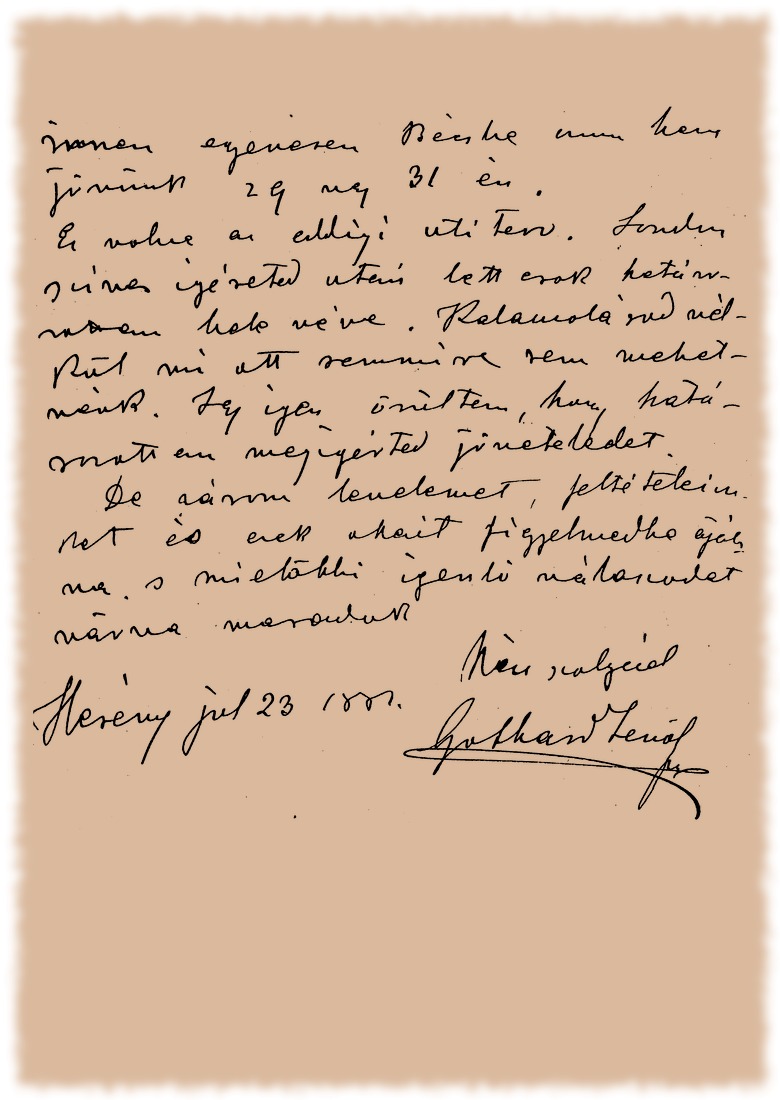 innen egyenesen Bécsbe
jövünk 29 vagy 31 én.
Ez volna az eddigi uti terv. London
szives igéreted után lett csak határo-
zottan bele véve. Kalauzolásod nél-
kül mi ott semmire sem mehet-
nénk. Igy igen örültem, hogy hatá-
rozottan megigérted jöveteledet.
De zárom levelemet, feltételein-
ket és ezek okait figyelmedbe ajál-
va, s mielöbbi igenlö válaszodat
várva maradok
Kész szolgád
Herény jul 23 1881.
Gothard Jenő